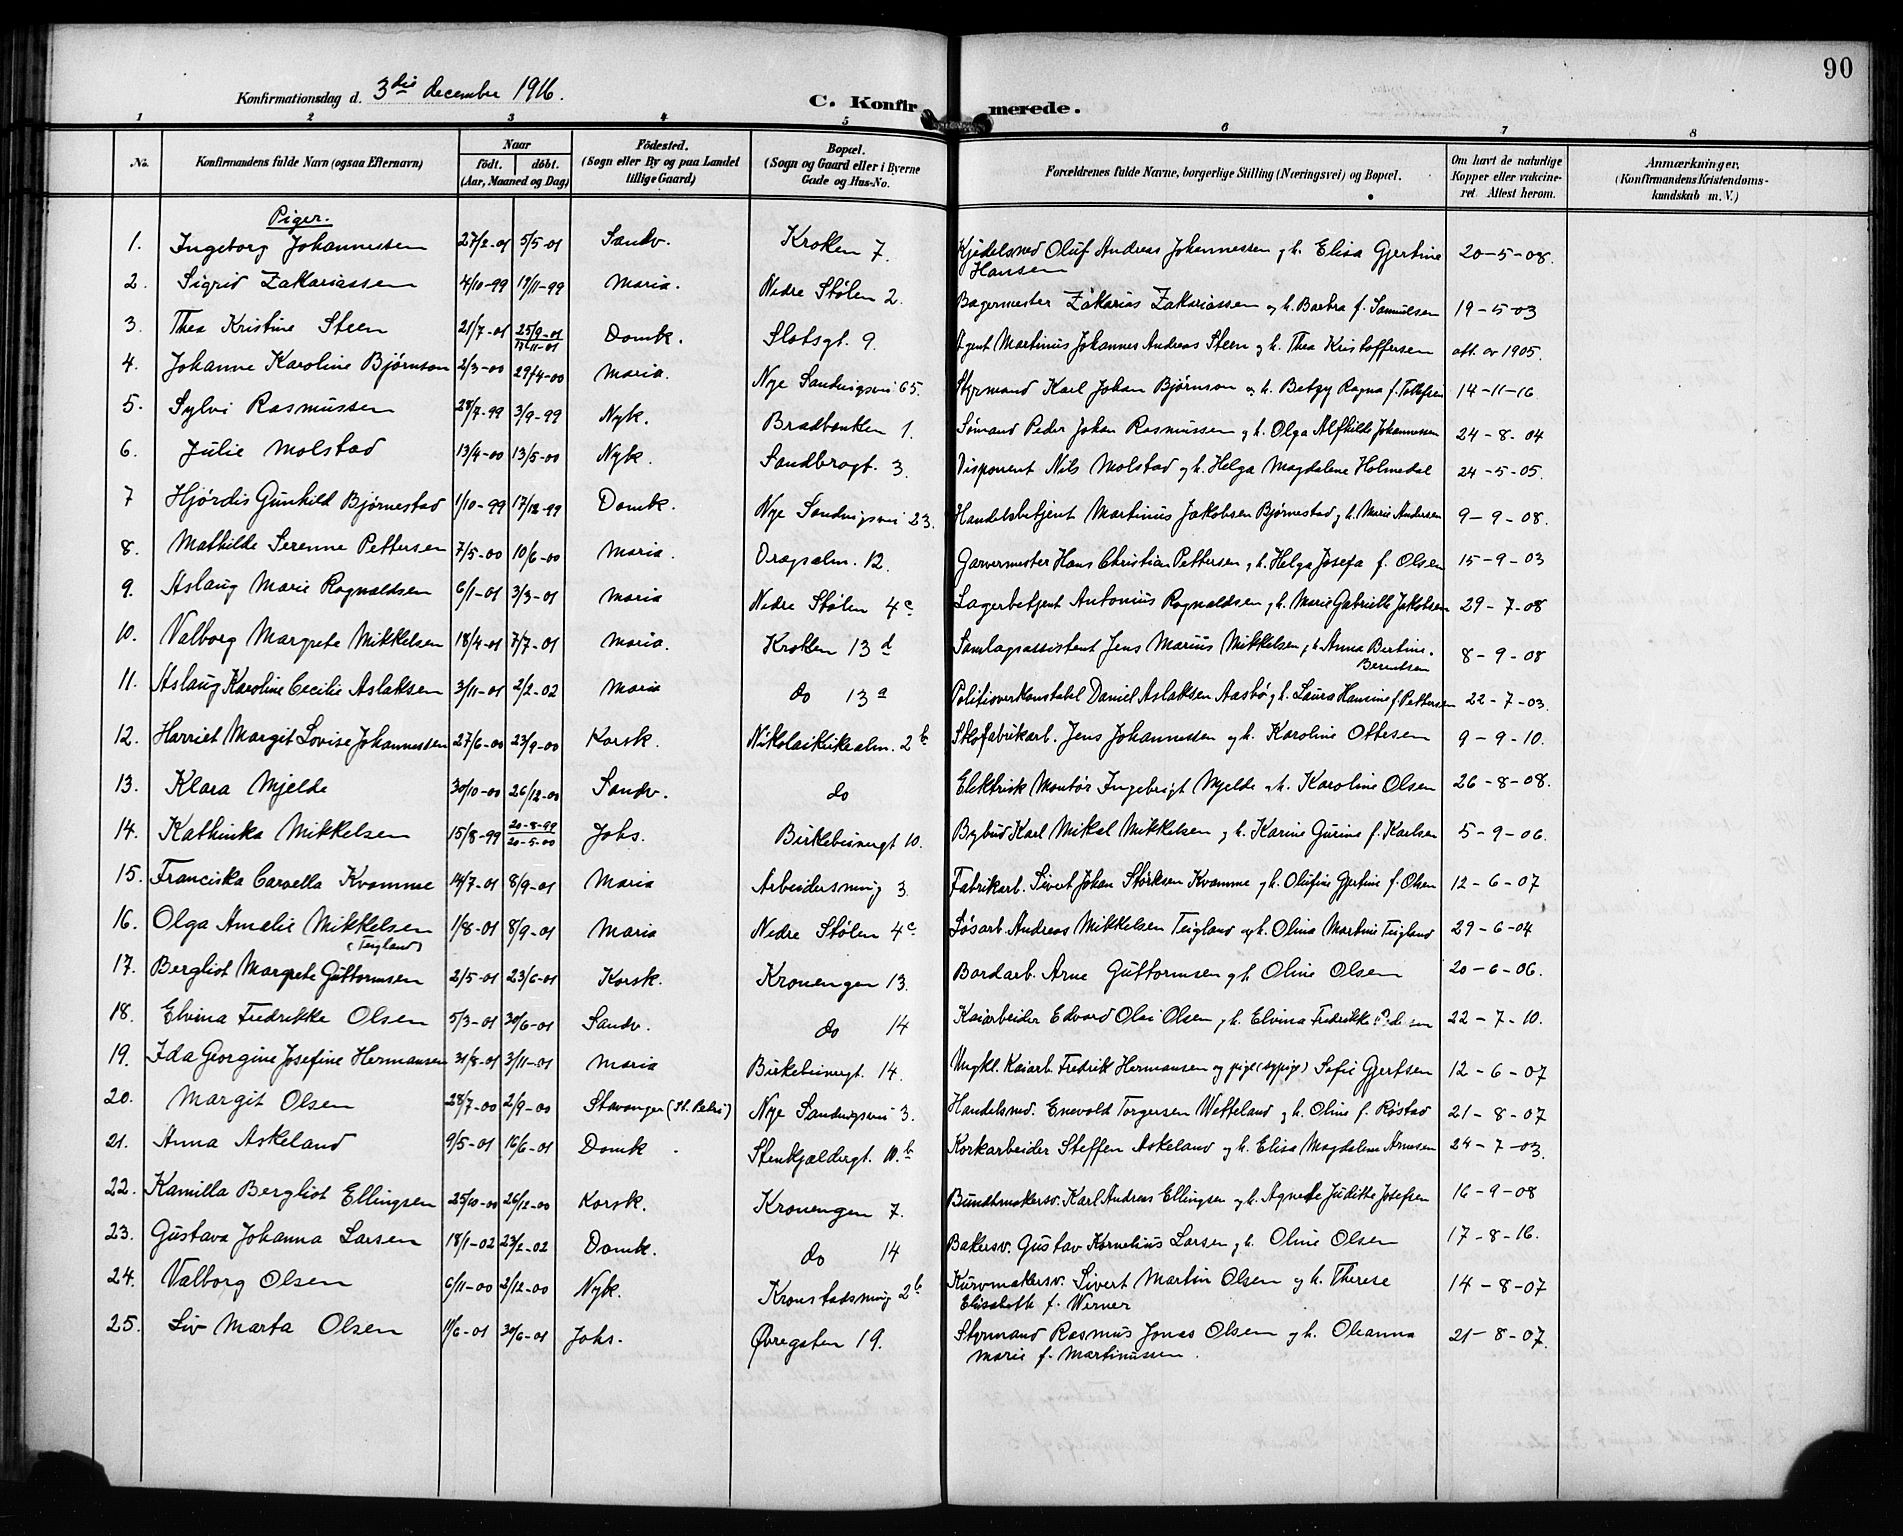 90
Konfirmationsdag d. 3die december 1916.
C. Konfirmerede.
1 2 3 4 5 6 7 8
No. Konfirmandens fulde Navn (ogsaa Efternavn) Naar födt. döbt. (Aar, Maaned og Dag) Födested. (Sogn eller By og paa Landet tillige Gaard) Bopæl. (Sogn og Gaard eller i Byerne Gade og Hus-No. Forældrenes fulde Navne, borgerlige Stilling (Næringsvei) og Bopæl. Om havt de naturlige Kopper eller vakcineret. Attest herom. Anmærkninger. (Konfirmandens Kristendomskundskab m. V.)
Piger.
1. Ingeborg Johannessen 27/2-01 5/5-01 Sandv. Kroken 7. Kjedelsmed Oluf Andreas Johannessen g. h. Elisa Gjertine Hansen 20-5-08.
2. Sigrid Zakariassen 4/10-99 19/11-99 Maria. Nedre Stølen 2. Bagermester Zakarias Zakariassen og h. Barbra f. Samuelsen 19-5-03
3. Thea Kristine Steen 21/7-01 25/9-01 17/11-01 Domk. Slotsgt. 9. Agent Martinus Johannes Andreas Steen og h. Thea Kristoffersen att. av 1905.
4. Johanne Karoline Bjørnson 2/3-00 29/4-00 Maria. Nye Sandvigsvei 65. Styrmand Karl Johan Bjørnson og h. Betzy Ragna f. Tollefsen 14-11-16.
5. Sylvi Rasmussen 28/7-99 3/9-99 Nyk. Bradbenken 1. Sømand Peder Johan Rasmussen g h. Olga Alfhilde Johannessen 24-8-04
6. Julie Molstad 13/4-00 13/5-00 Nyk. Sandbrogt. 3. Disponent Nils Molstad og h. Helga Magdalene Holmedal 24-5-05.
7 Hjørdis Gunhild Bjørnestad 1/10-99 17/12-99 Domk. Nye Sandvigsvei 23. Handelsbetjent Martinus Jakobsen Bjørnestad g h. Marie Andersen 9-9-08.
8. Mathilde Serenne Pettersen 7/5-00 10/6-00 Maria. Dragsalm. 12. Garvermester Hans Christian Pettersen g. h. Helga Josefa f. Olsen 15-9-03
9. Aslaug Marie Ragnaldsen 6/1-01 3/3-01 Maria Nedre Stølen 4c Lagerbetjent Antonius Ragnaldsen g h. Marie Gabrielle Jakobsen 29-7-08
10. Valborg Margrete Mikkelsen 18/4-01 7/7-01 Maria. Kroken 13d Samlagsassistent Jens Marius Mikkelsen g h Anna Bertine Berentsen 8-9-08
11. Aslaug Karoline Cecilie Aslaksen 3/11-01 2/2-02 Maria do 13a Politioverkonstabel Daniel Aslaksen Aasbø g h. Laura Hansine f. Pettersen 22-7-03.
12. Harriet Margit Lovise Johannessen 27/6-00 23/9-00 Korsk. Nikolaikirkealm. 2b Skofabrikarb. Jens Johannessen og h. Karoline Ottesen 9-9-10.
13. Klara Mjelde 30/10-00 26/12-00 Sandv. do Elektrisk Montør Ingebrigt Mjelde og h. Karoline Olsen 26-8-08.
14. Kathinka Mikkelsen 15/8-99 20-8-99 20-5-00 Johs. Birkebeinergt 10. Bybud Karl Mikal Mikkelsen og h. Karine Gurine f. Karlsen 5-9-06.
15. Franciska Carvella Kvamme 14/7-01 8/9-01 Maria Arbeidersmug 3. Fabrikarb. Sivert Johan Størksen Kvamme g h. Olufine Gjertine f. Olsen 12-6-07
16. Olga Amalie Mikkelsen (Teigland) 1/8-01 8/9-01 Maria Nedre Stølen 4c Løsarb. Andreas Mikkelsen Teigland og h. Olina Martine Teigland 29-6-04
17. Bergliot Margrete Guttormsen 2/5-01 23/6-01 Korsk. Kronengen 13. Bordarb. Arne Guttormsen g h. Oline Olsen 20-6-06.
18. Elvina Fredrikke Olsen 5/3-01 30/6-01 Sandv. do 14 Kaiarbeider Edvard Olai Olsen g h. Elvina Fredrikke 22-7-10.
19. Ida Georgine Josefine Hermansen 31/8-01 3/11-01 Maria Birkebeinergt. 14. Ungkl. Kaiarb. Fredrik Hermansen og pige (sypige) Sofie Gjertsen 12-6-07
20. Margit Olsen 28/7-00 2/9-00 Stavanger (St. Petri) Nye Sandvigsvei 3. Handelsred. Enevold Torgersen Wetteland g h. Oline f. Røstad 21-8-07
21. Anna Askeland 9/5-01 16/6-01 Domk. Stenkjældergt. 10b Korkarbeider Steffen Askeland og h. Elisa Magdalene Arnesen 24-7-03.
22. Kamilla Bergliot Ellingsen 25/10-00 26/12-00 Korsk. Kronengen 7. Bundtmakersv. Karl Andreas Ellingsen og h. Agnete Juditte Josefsen 16-9-08
23. Gustava Johanna Larsen 18/1-02 23/2-02 Domk. do 14 Bakersv. Gustav Kornelius Larsen g h. Oline Olsen 17-8-16.
24. Valborg Olsen 6/11-00 2/12-00 Nyk. Kronstadsmug 2b Kurvmakersv. Sivert Martin Olsen og h. Therese Elisabeth f. Werner 14-8-07
25. Liv Marta Olsen 11/6-01 30/6-01 Johs. Øvregaten 19. Styrmand Rasmus Jonas Olsen og h. Oleanna Marie f. Martinussen. 21-8-07.